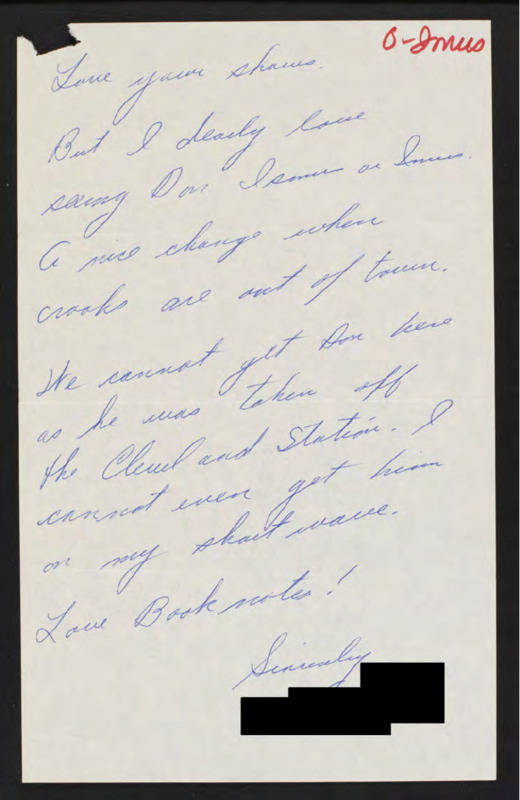 O-Imus
Love your shows.
But I dearly love
seeing Don Ismus or Imus.
A nice change when
crooks are out of town.
We cannot get Don here
as he was taken off
the Cleveland Station. I
cannot even get him
on my short wave.
Love Book notes!
Sincerely